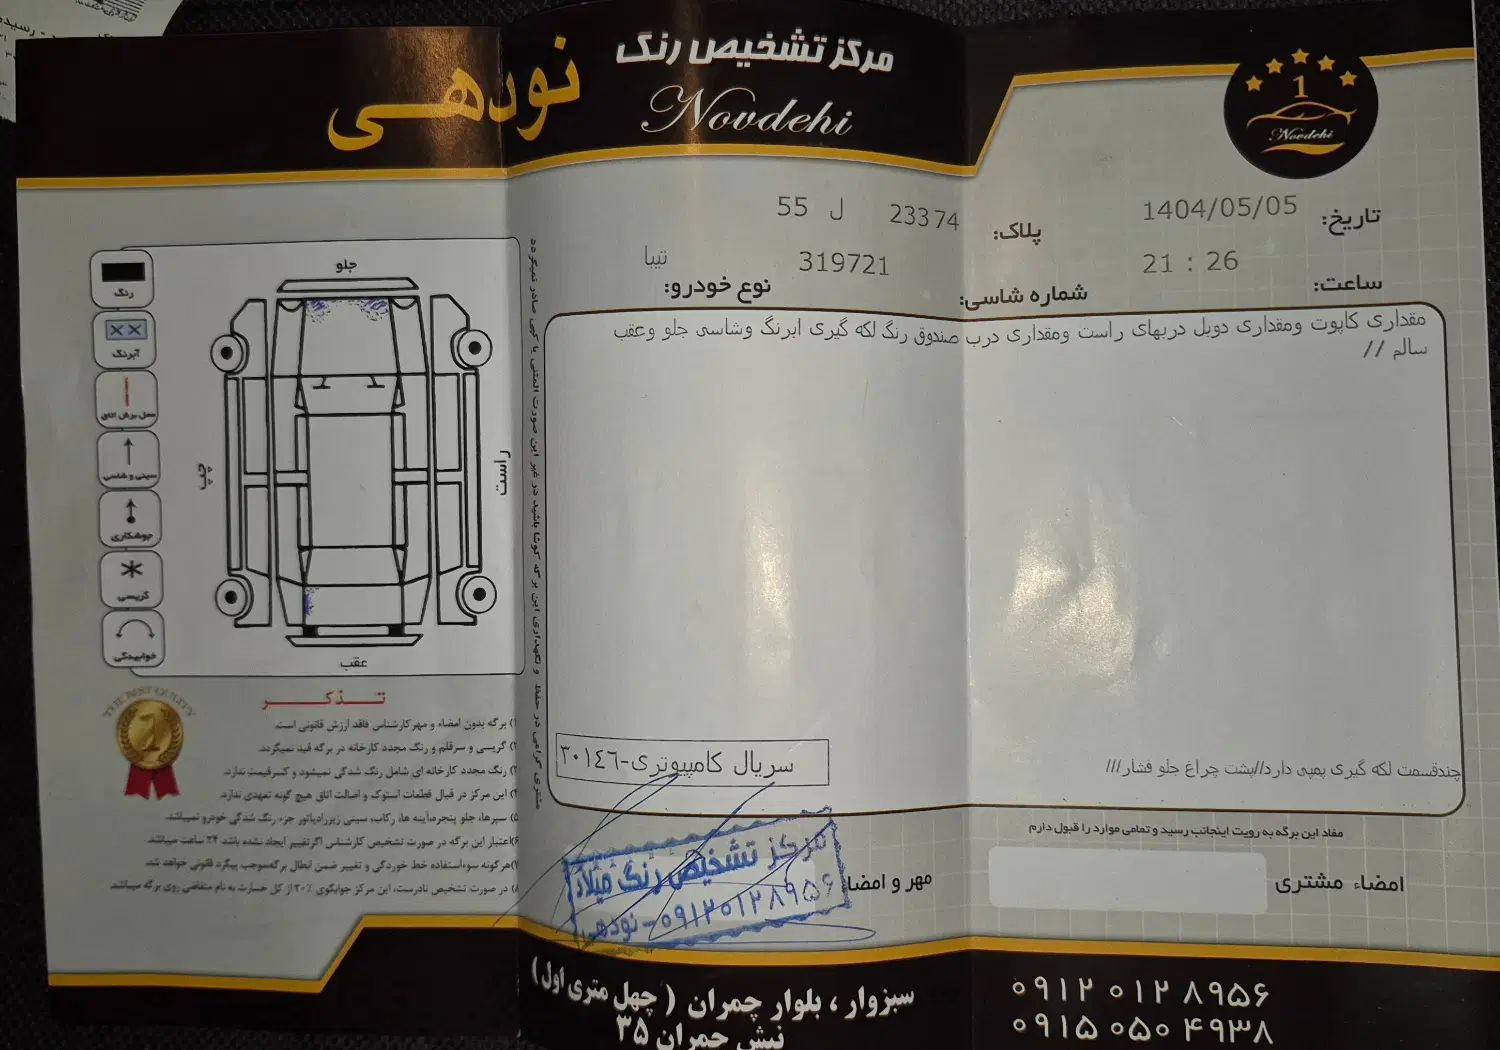 مرکز تشخیص رنگ
نودهی
Novdehi
1
Novdehi
تاریخ: 1404/05/05
پلاک: 23374 ل 55
ساعت: 21 : 26
شماره شاسی: 319721
نوع خودرو: تیبا
مقداری کاپوت ومقداری دوبل دربهای راست ومقداری درب صندوق رنگ لکه گیری ابرنگ وشاسی جلو وعقب
سالم //
چندقسمت لکه گیری پمپی دارد//پشت چراغ جلو فشار///
سریال کامپیوتری-۳۰۱٤٦
مفاد این برگه به رویت اینجانب رسید و تمامی موارد را قبول دارم
امضاء مشتری
مهر و امضا
مرکز تشخیص رنگ میلاد
۰۹۱۲۰۱۲۸۹۵۶-نودهی
مشتری گرامی در حفظ و نگهداری این برگه کوشا باشید در غیر این صورت المثنی یا کپی صادر نمیگردد
جلو
راست
چپ
عقب
رنگ
آبرنگ
محل برش اتاق
سینی و شاسی
جوشکاری
گریسی
خوابیدگی
THE BEST QUALITY
1
تذکر
۱) برگه بدون امضاء و مهر کارشناس فاقد ارزش قانونی است.
۲) گریسی و سرقلم و رنگ مجدد کارخانه در برگه قید نمیگردد.
۳) رنگ مجدد کارخانه ای شامل رنگ شدگی نمیشود و کسر قیمت ندارد.
۴) این مرکز در قبال قطعات استوک و اصالت اتاق هیچ گونه تعهدی ندارد.
۵) سپرها، جلو پنجره، آینه ها، رکاب، سینی زیر رادیاتور جزء رنگ شدگی خودرو نمیباشد.
۶) اعتبار این برگه در صورت تشخیص کارشناس اگر تغییر ایجاد نشده باشد ۲۴ ساعت میباشد.
۷) هرگونه سوءاستفاده خط خوردگی و تغییر ضمن ابطال برگه، موجب پیگرد قانونی خواهد شد.
۸) در صورت تشخیص نادرست، این مرکز جوابگوی ۲۰٪ از کل خسارت به نام متقاضی روی برگه میباشد.
سبزوار ، بلوار چمران ( چهل متری اول )
نبش چمران ۳۵
۰۹۱۲ ۰۱۲ ۸۹۵۶
۰۹۱۵ ۰۵۰ ۴۹۳۸